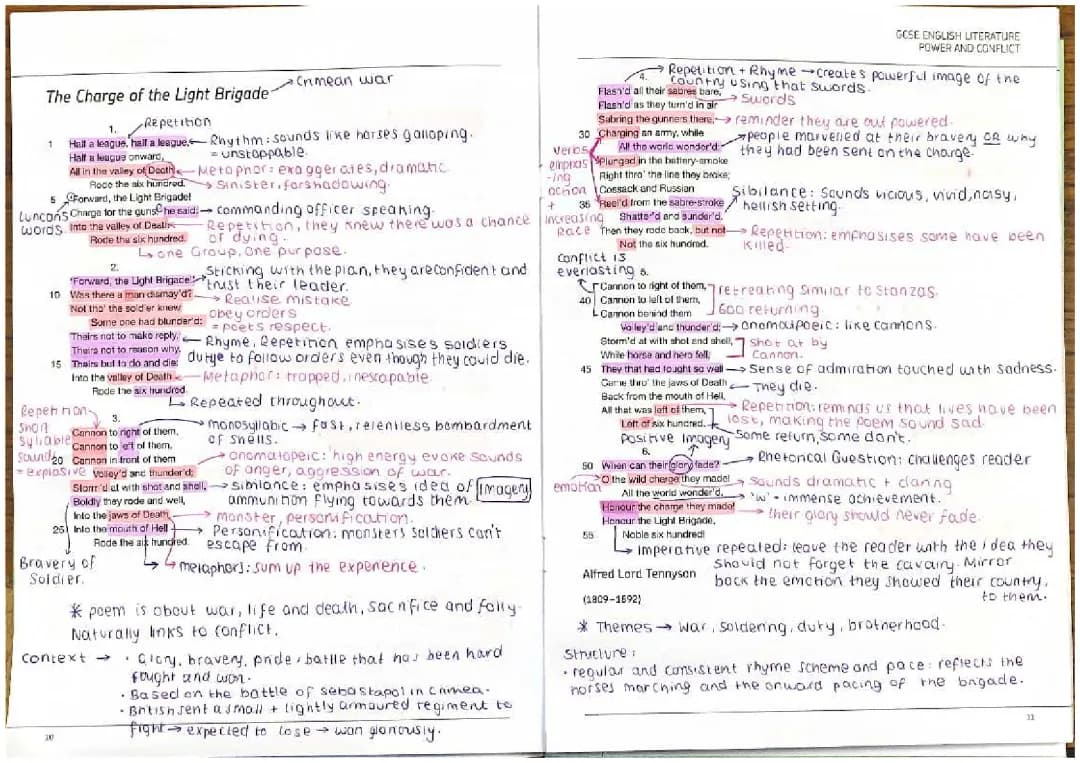 The Charge of the Light Brigade → Crimean war
1.
Repetition
1 Half a league, half a league, ← Rhythm: sounds like horses galloping.
Half a league onward, = unstoppable.
All in the valley of Death ← Metaphor: exaggerates, dramatic.
Rode the six hundred. → Sinister, forshadowing.
5 'Forward, the Light Brigade!
Charge for the guns!' he said: → commanding officer speaking.
Luncans words.
Into the valley of Death ← Repetition, they knew there was a chance
Rode the six hundred. of dying.
↳ one Group, one purpose.
2.
'Forward, the Light Brigade!' → Sticking with the plan, they are confident and
trust their leader.
10 Was there a man dismay'd? → Realise mistake
Not tho' the soldier knew obey orders
Some one had blunder'd: = poets respect.
Theirs not to make reply, ← Rhyme, Repetition emphasises soldiers
Theirs not to reason why, dutye to follow orders even though they could die.
15 Theirs but to do and die:
Into the valley of Death ← Metaphor: trapped, inescapable.
Rode the six hundred.
↳ Repeated throughout.
Repetition
short
syllable
sound
= explosive
3.
Cannon to right of them, → monosyllabic → fast, relentless bombardment
Cannon to left of them, of shells.
20 Cannon in front of them → onomatopeic: high energy evoke sounds
Volley'd and thunder'd; of anger, aggression of war.
Storm'd at with shot and shell, → sibilance: emphasises idea of Imagery
Boldly they rode and well, ammunition flying towards them
Into the jaws of Death, → monster, personification.
25 Into the mouth of Hell → Personification: monsters soldiers can't
Rode the six hundred. escape from.
Bravery of
Soldier.
↳ metaphors: sum up the experience.
* poem is about war, life and death, sacrifice and folly.
Naturally links to conflict.
Context → • Glory, bravery, pride, battle that has been hard
fought and won.
• Based on the battle of sebastapol in crimea.
• British sent a small + lightly armoured regiment to
fight → expected to lose → won gloriously.
10
GCSE ENGLISH LITERATURE
POWER AND CONFLICT
4.
→ Repetition + Rhyme → creates powerful image of the
country using that swords.
Flash'd all their sabres bare, → Swords
Flash'd as they turn'd in air
Sabring the gunners there, → reminder they are out powered.
30 Charging an army, while → people marvelled at their bravery OR why
All the world wonder'd: they had been sent on the charge.
verbs
emphas
-ing
action
+
increasing
pace
Plunged in the battery-smoke
Right thro' the line they broke;
Cossack and Russian
35 Reel'd from the sabre-stroke Sibilance: Sounds vicious, vivid, noisy,
Shatter'd and sunder'd. hellish setting.
Then they rode back, but not → Repetition: emphasises some have been
Not the six hundred. killed.
Conflict is
everlasting
5.
Cannon to right of them, retreating similar to stanza 3.
40 Cannon to left of them,
Cannon behind them 600 returning
Volley'd and thunder'd; → onomatopoeic: like cannons.
Storm'd at with shot and shell, Shot at by
While horse and hero fell, Cannon.
45 They that had fought so well → Sense of admiration touched with sadness.
Came thro' the jaws of Death ← They die.
Back from the mouth of Hell,
All that was left of them, → Repetition: reminds us that lives have been
Left of six hundred. lost, making the poem sound sad.
Positive Imagery Some return, some don't.
6.
50 When can their glory fade? → Rhetorical Question: challenges reader
emotion
O the wild charge they made! → sounds dramatic + daring
All the world wonder'd. → 'w' - immense achievement.
Honour the charge they made! → their glory should never fade.
Honour the Light Brigade,
55 Noble six hundred!
↳ Imperative repeated: leave the reader with the idea they
should not forget the cavalry. Mirror
back the emotion they showed their country,
to them.
Alfred Lord Tennyson
(1809–1892)
* Themes → war, soldering, duty, brotherhood.
Structure:
• regular and consistent rhyme scheme and pace: reflects the
horses marching and the onward pacing of the brigade.
11